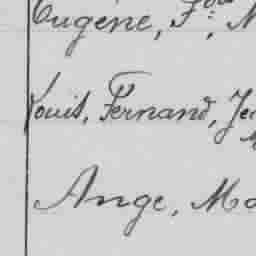 Eugène, F
Louis, Fernand, Je
Ange, Ma